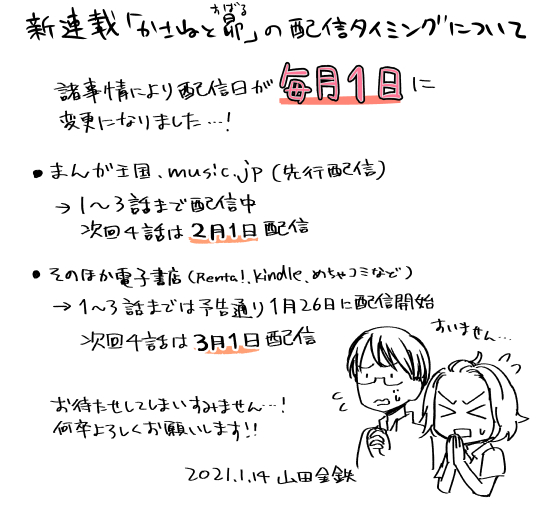 新連載「かさねと昴」の配信タイミングについて
すばる
諸事情により配信日が毎月1日に
変更になりました…!
• まんが王国、music.jp (先行配信)
→ 1〜3話まで配信中
次回4話は2月1日配信
• そのほか電子書店 (Renta!、kindle、めちゃコミなど)
→ 1〜3話までは予告通り1月26日に配信開始
次回4話は3月1日配信
すいません…
お待たせしてしまいすみません…!
何卒よろしくお願いします!!
2021.1.14 山田金鉄